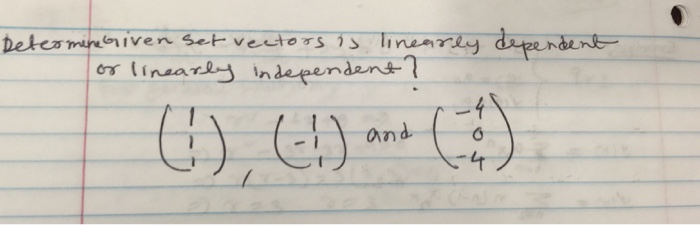 Determine Given set vectors is linearly dependent
or linearly independent?
(1 1 1), (1 -1 1) and (-4 0 -4)